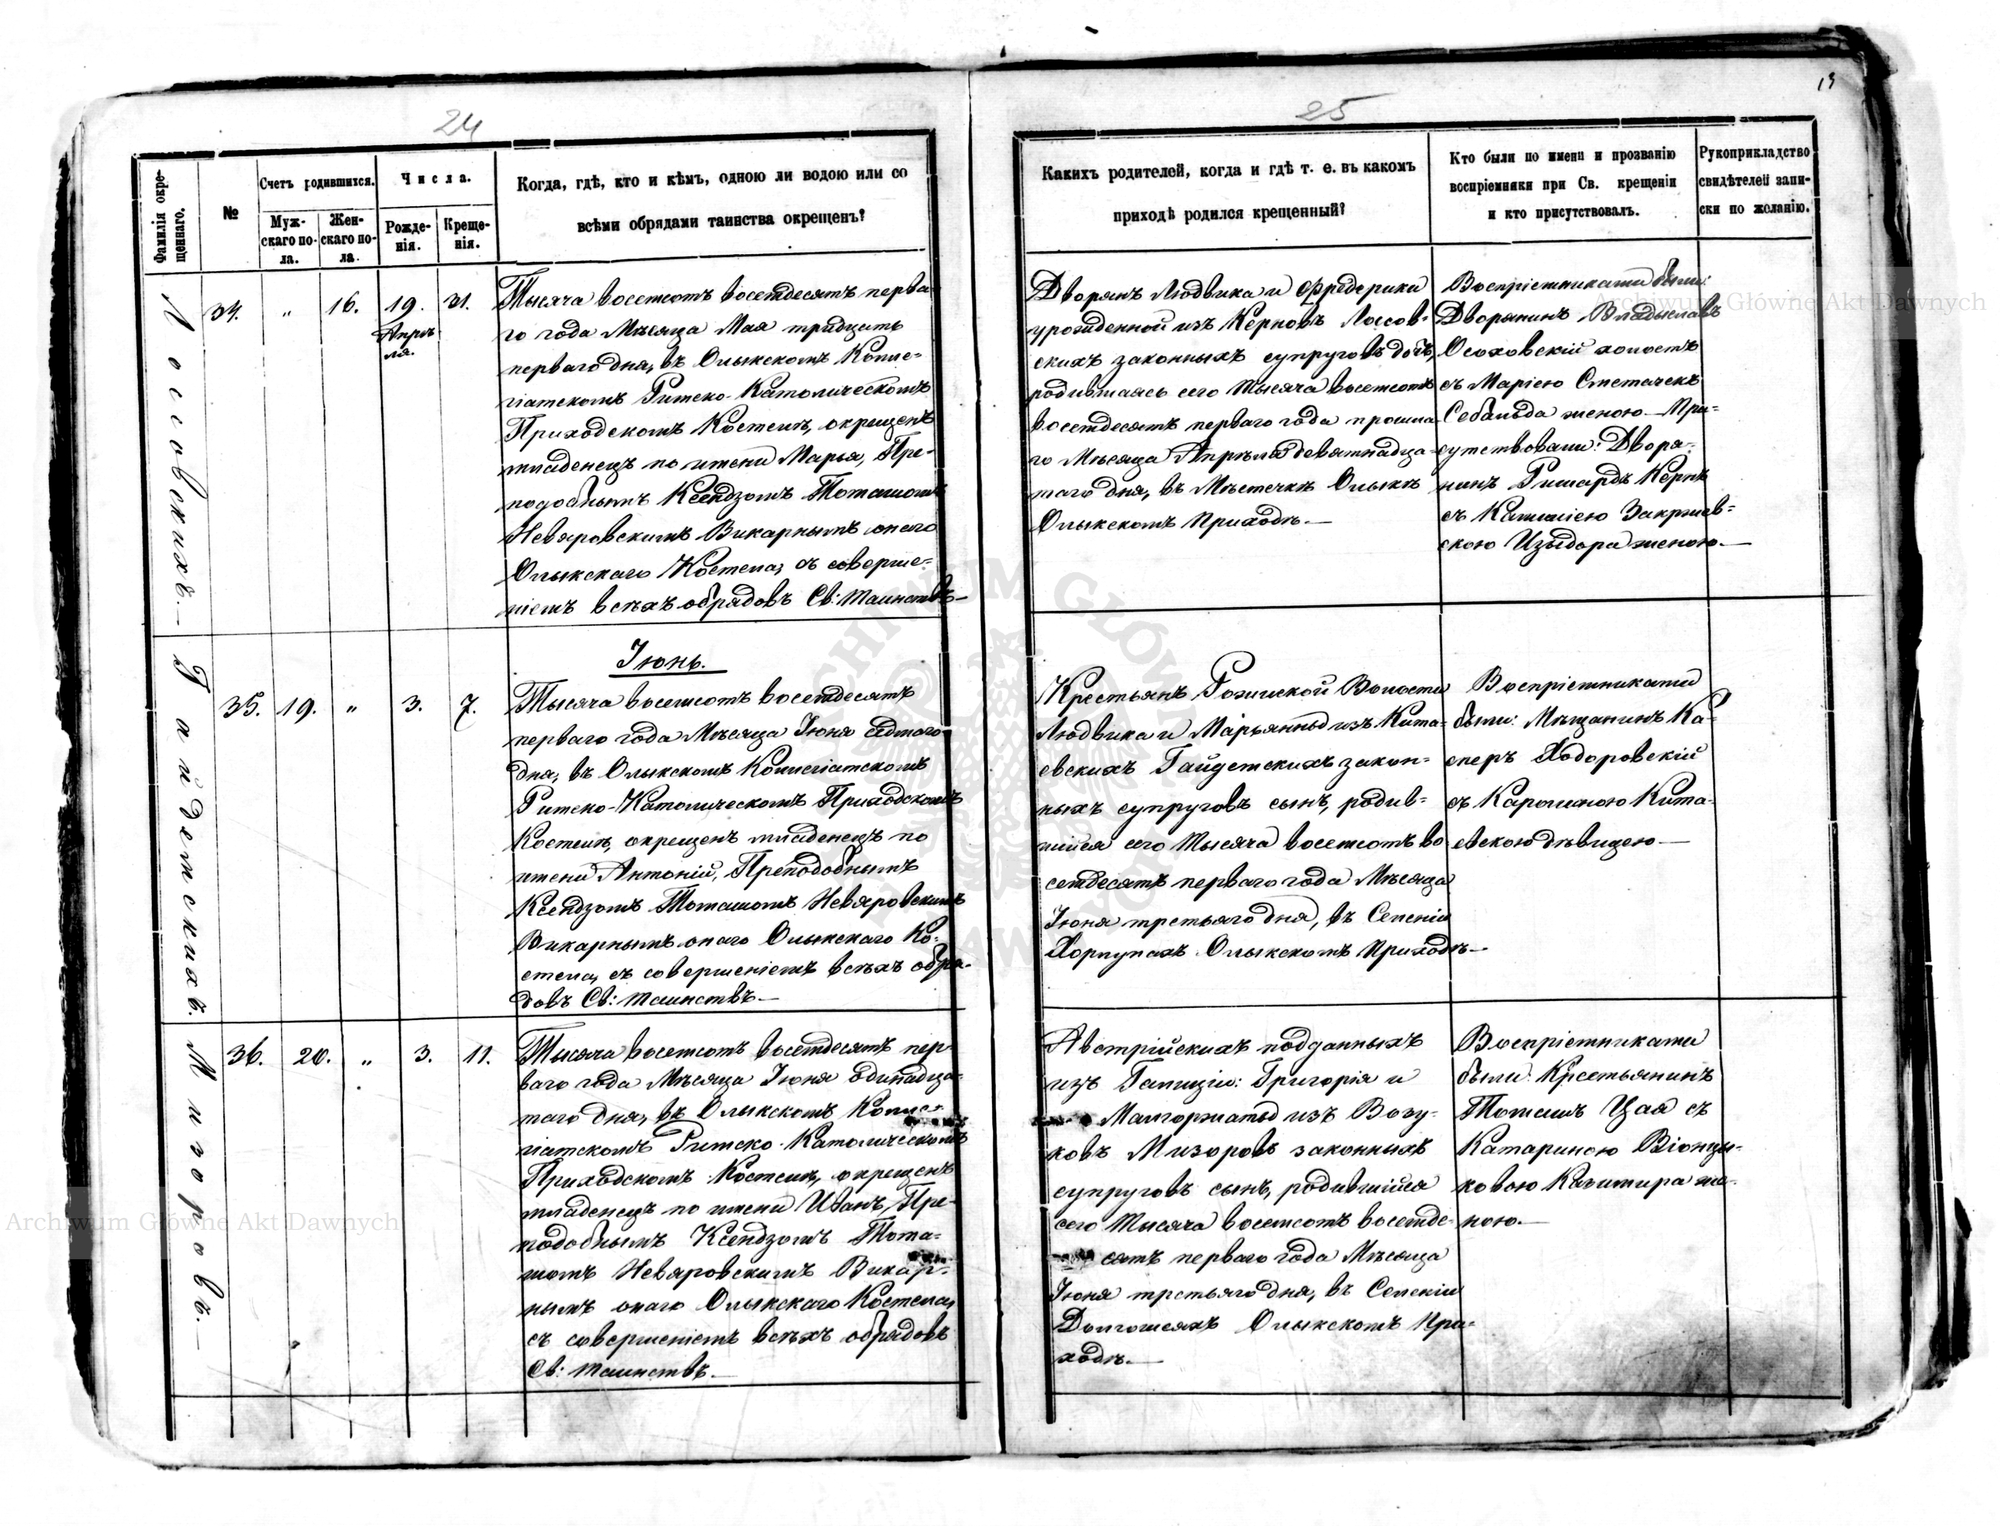 24
Фамилія окре-
щеннаго.
№
Счетъ родившихся.
Муж-
скаго по-
ла.
Жен-
скаго по-
ла
Числа.
Рожде-
нія.
Креще-
нія.
Когда, гдѣ, кто и кѣмъ, одною ли водою или со
всѣми обрядами таинства окрещенъ?
Лоссовскихъ.
34.
"
16.
19.
Апрѣ
ля.
31.
Тысяча восемсотъ восемдесятъ перва
го года Мѣсяца Мая тридцать
перваго дня, въ Олыкскомъ Колле-
гіатскомъ Римско-Католическомъ
Приходскомъ Костелѣ, окрещенъ
младенецъ по имени Марья, Пре-
подобнымъ Ксендзомъ Томашомъ
Невяровскимъ Викарнымъ онаго
Олыкскаго Костела, съ соверше-
ніемъ всѣхъ обрядовъ Св: таинствъ—
Іюнь.
Гайдемскихъ.
35.
19.
"
3.
7.
Тысяча восемсотъ восемдесятъ
перваго года Мѣсяца Іюня седмаго
дня, въ Олыкскомъ Коллегіатскомъ
Римско-Католическомъ Приходскомъ
Костелѣ, окрещенъ младенецъ по
имени Антоній, Преподобнымъ
Ксендзомъ Томашомъ Невяровскимъ
Викарнымъ онаго Олыкскаго Ко-
стела, съ совершеніемъ всѣхъ обря-
довъ Св: таинствъ.—
Мизоровъ.
36.
20.
"
3.
11.
Тысяча восемсотъ восемдесятъ пер-
ваго года Мѣсяца Іюня одинадца-
таго дня, въ Олыкскомъ Колле-
гіатскомъ Римско-Католическомъ
Приходскомъ Костелѣ, окрещенъ
младенецъ по имени Иванъ, Пре-
подобнымъ Ксендзомъ Тома-
шомъ Невяровскимъ Викар-
нымъ онаго Олыкскаго Костела,
съ совершеніемъ всѣхъ обрядовъ
Св: таинствъ.—
25
13
Какихъ родителей, когда и гдѣ т. е. въ какомъ
приходѣ родился крещенный?
Кто были по имени и прозванію
воспріемники при Св. крещеніи
и кто присутствовалъ.
Рукоприкладство
свидѣтелей запи-
ски по желанію.
Дворянъ Людвика и Фредерики
урожденной изъ Керновъ Лоссов-
скихъ законныхъ супруговъ дочь,
родившаясь сего тысяча восемсотъ
восемдесятъ перваго года прошла
го Мѣсяца Апрѣля девятнадца-
таго дня, въ Мѣстечкѣ Олыкѣ
Олыкскомъ приходѣ.—
Воспріемниками были:
Дворянинъ Владыславъ
Осоховскій холостъ
съ Маріею Сметачекъ
Себальда женою—При-
сутствовали: Дворя-
нинъ Ришардъ Кернъ
съ Камиліею Закржев-
скою Изыдора женою.—
Крестьянъ Рожиской Волости
Людвика и Марьянны изъ Кита-
евскихъ Гайдемскихъ закон-
ныхъ супруговъ сынъ, родив-
шійся сего тысяча восемсотъ во
семдесятъ перваго года Мѣсяца
Іюня третьяго дня, въ Селеніи
Хорлупахъ Олыкскомъ приходѣ—
Воспріемниками
были: Мѣщанинъ Ка-
сперъ Ходоровскій
съ Каролиною Кита-
евскою дѣвицею—
Австрійскихъ подданныхъ
изъ Галиціи: Григорія и
Малгоржаты изъ Возу-
ковъ Мизоровъ законныхъ
супруговъ сынъ, родившійся
сего тысяча восемсотъ восемде-
сятъ перваго года Мѣсяца
Іюня третьяго дня, въ Селеніи
Долгошеяхъ Олыкскомъ при-
ходѣ.—
Воспріемниками
были: Крестьянинъ
Томашъ Цая съ
Катариною Віонцы-
ковою Казимира же-
ною.—
Archiwum Główne Akt Dawnych
Archiwum Główne Akt Dawnych